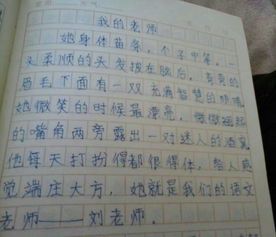 我的老师
她身体苗条，个子中等，一
头柔顺的头发披在脑后，弯弯的
眉毛下面有一双充满智慧的眼睛
她微笑的时候最漂亮，微微翘起
的嘴角两旁露出一对迷人的酒窝
他每天打扮得都很得体，给人感
觉端庄大方，她就是我们的语文
老师——刘老师。